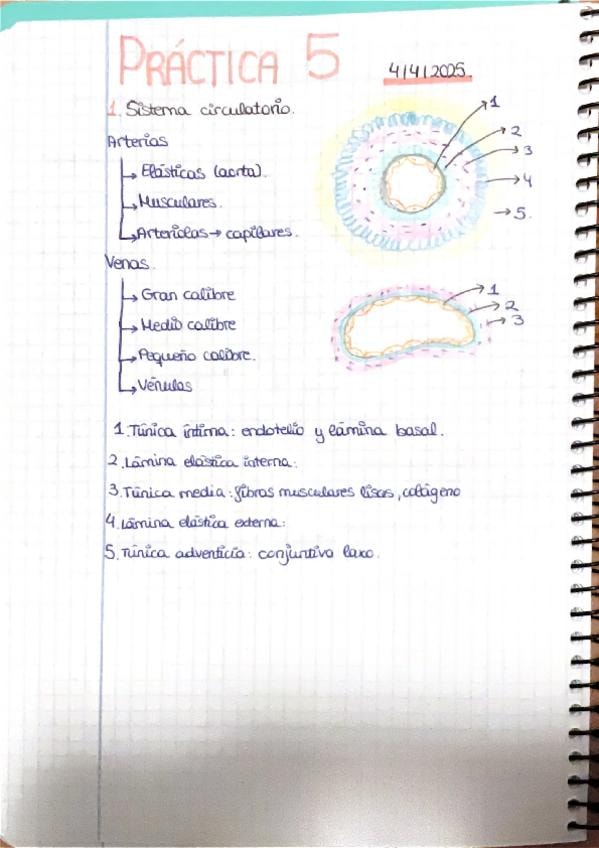 PRÁCTICA 5
4/4/2025.
1. Sistema circulatorio.
Arterias
Elásticas (aorta).
Musculares.
Arteriolas → capilares.
1
2
3
4
5.
Venas.
Gran calibre
Medio calibre
Pequeño calibre.
Vénulas
1
2
3
1. Túnica íntima: endotelio y lámina basal.
2. Lámina elástica interna:
3. Túnica media: fibras musculares lisas, colágeno
4. Lámina elástica externa:
5. Túnica adventicia: conjuntivo laxo.